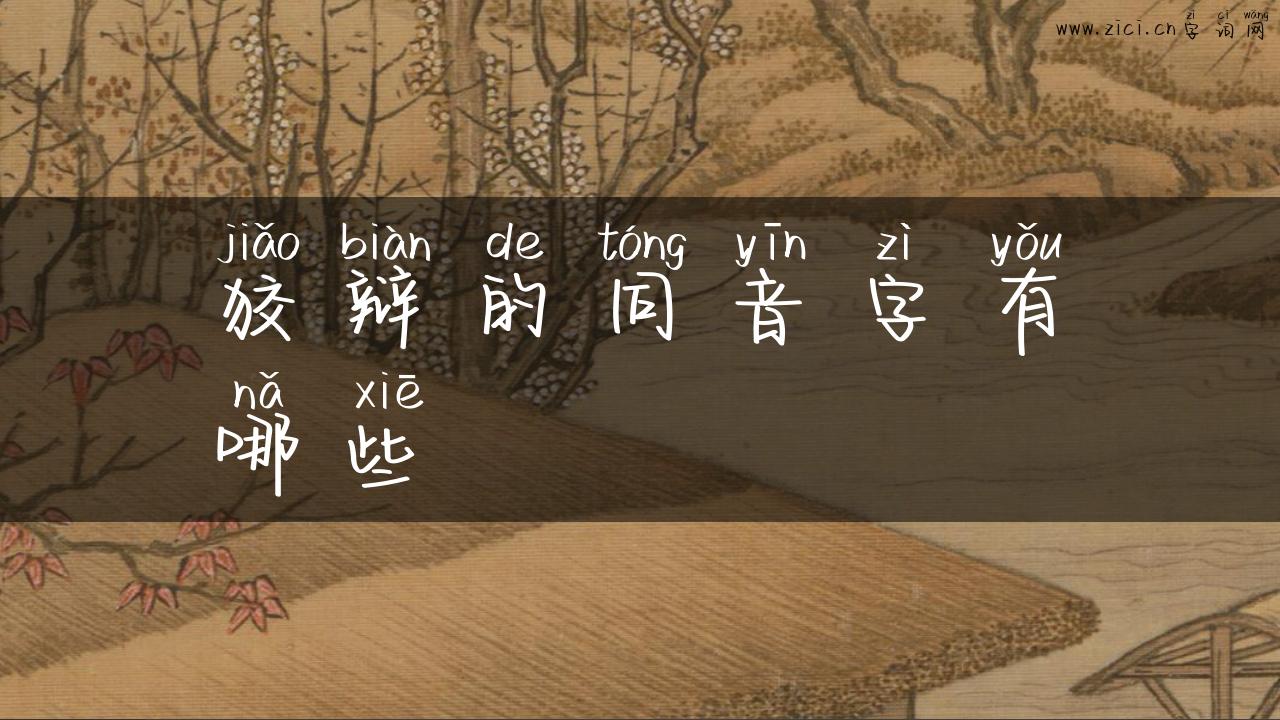 zì cí wǎng
www.zici.cn字词网
jiǎo biàn de tóng yīn zì yǒu
狡辩的同音字有
nǎ xiē
哪些